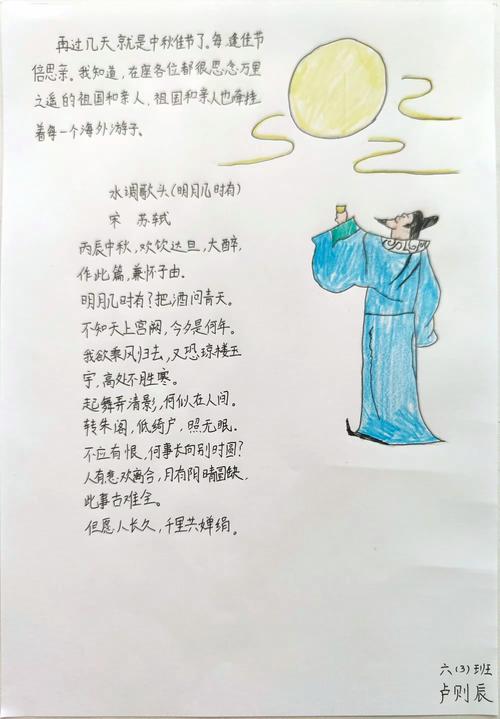 再过几天就是中秋佳节了。每逢佳节
倍思亲。我知道，在座各位都很思念万里
之遥的祖国和亲人，祖国和亲人也牵挂
着每一个海外游子。
水调歌头(明月几时有)
宋 苏轼
丙辰中秋，欢饮达旦，大醉，
作此篇，兼怀子由。
明月几时有？把酒问青天。
不知天上宫阙，今夕是何年。
我欲乘风归去，又恐琼楼玉
宇，高处不胜寒。
起舞弄清影，何似在人间。
转朱阁，低绮户，照无眠。
不应有恨，何事长向别时圆？
人有悲欢离合，月有阴晴圆缺，
此事古难全。
但愿人长久，千里共婵娟。
六(3)班
卢则辰